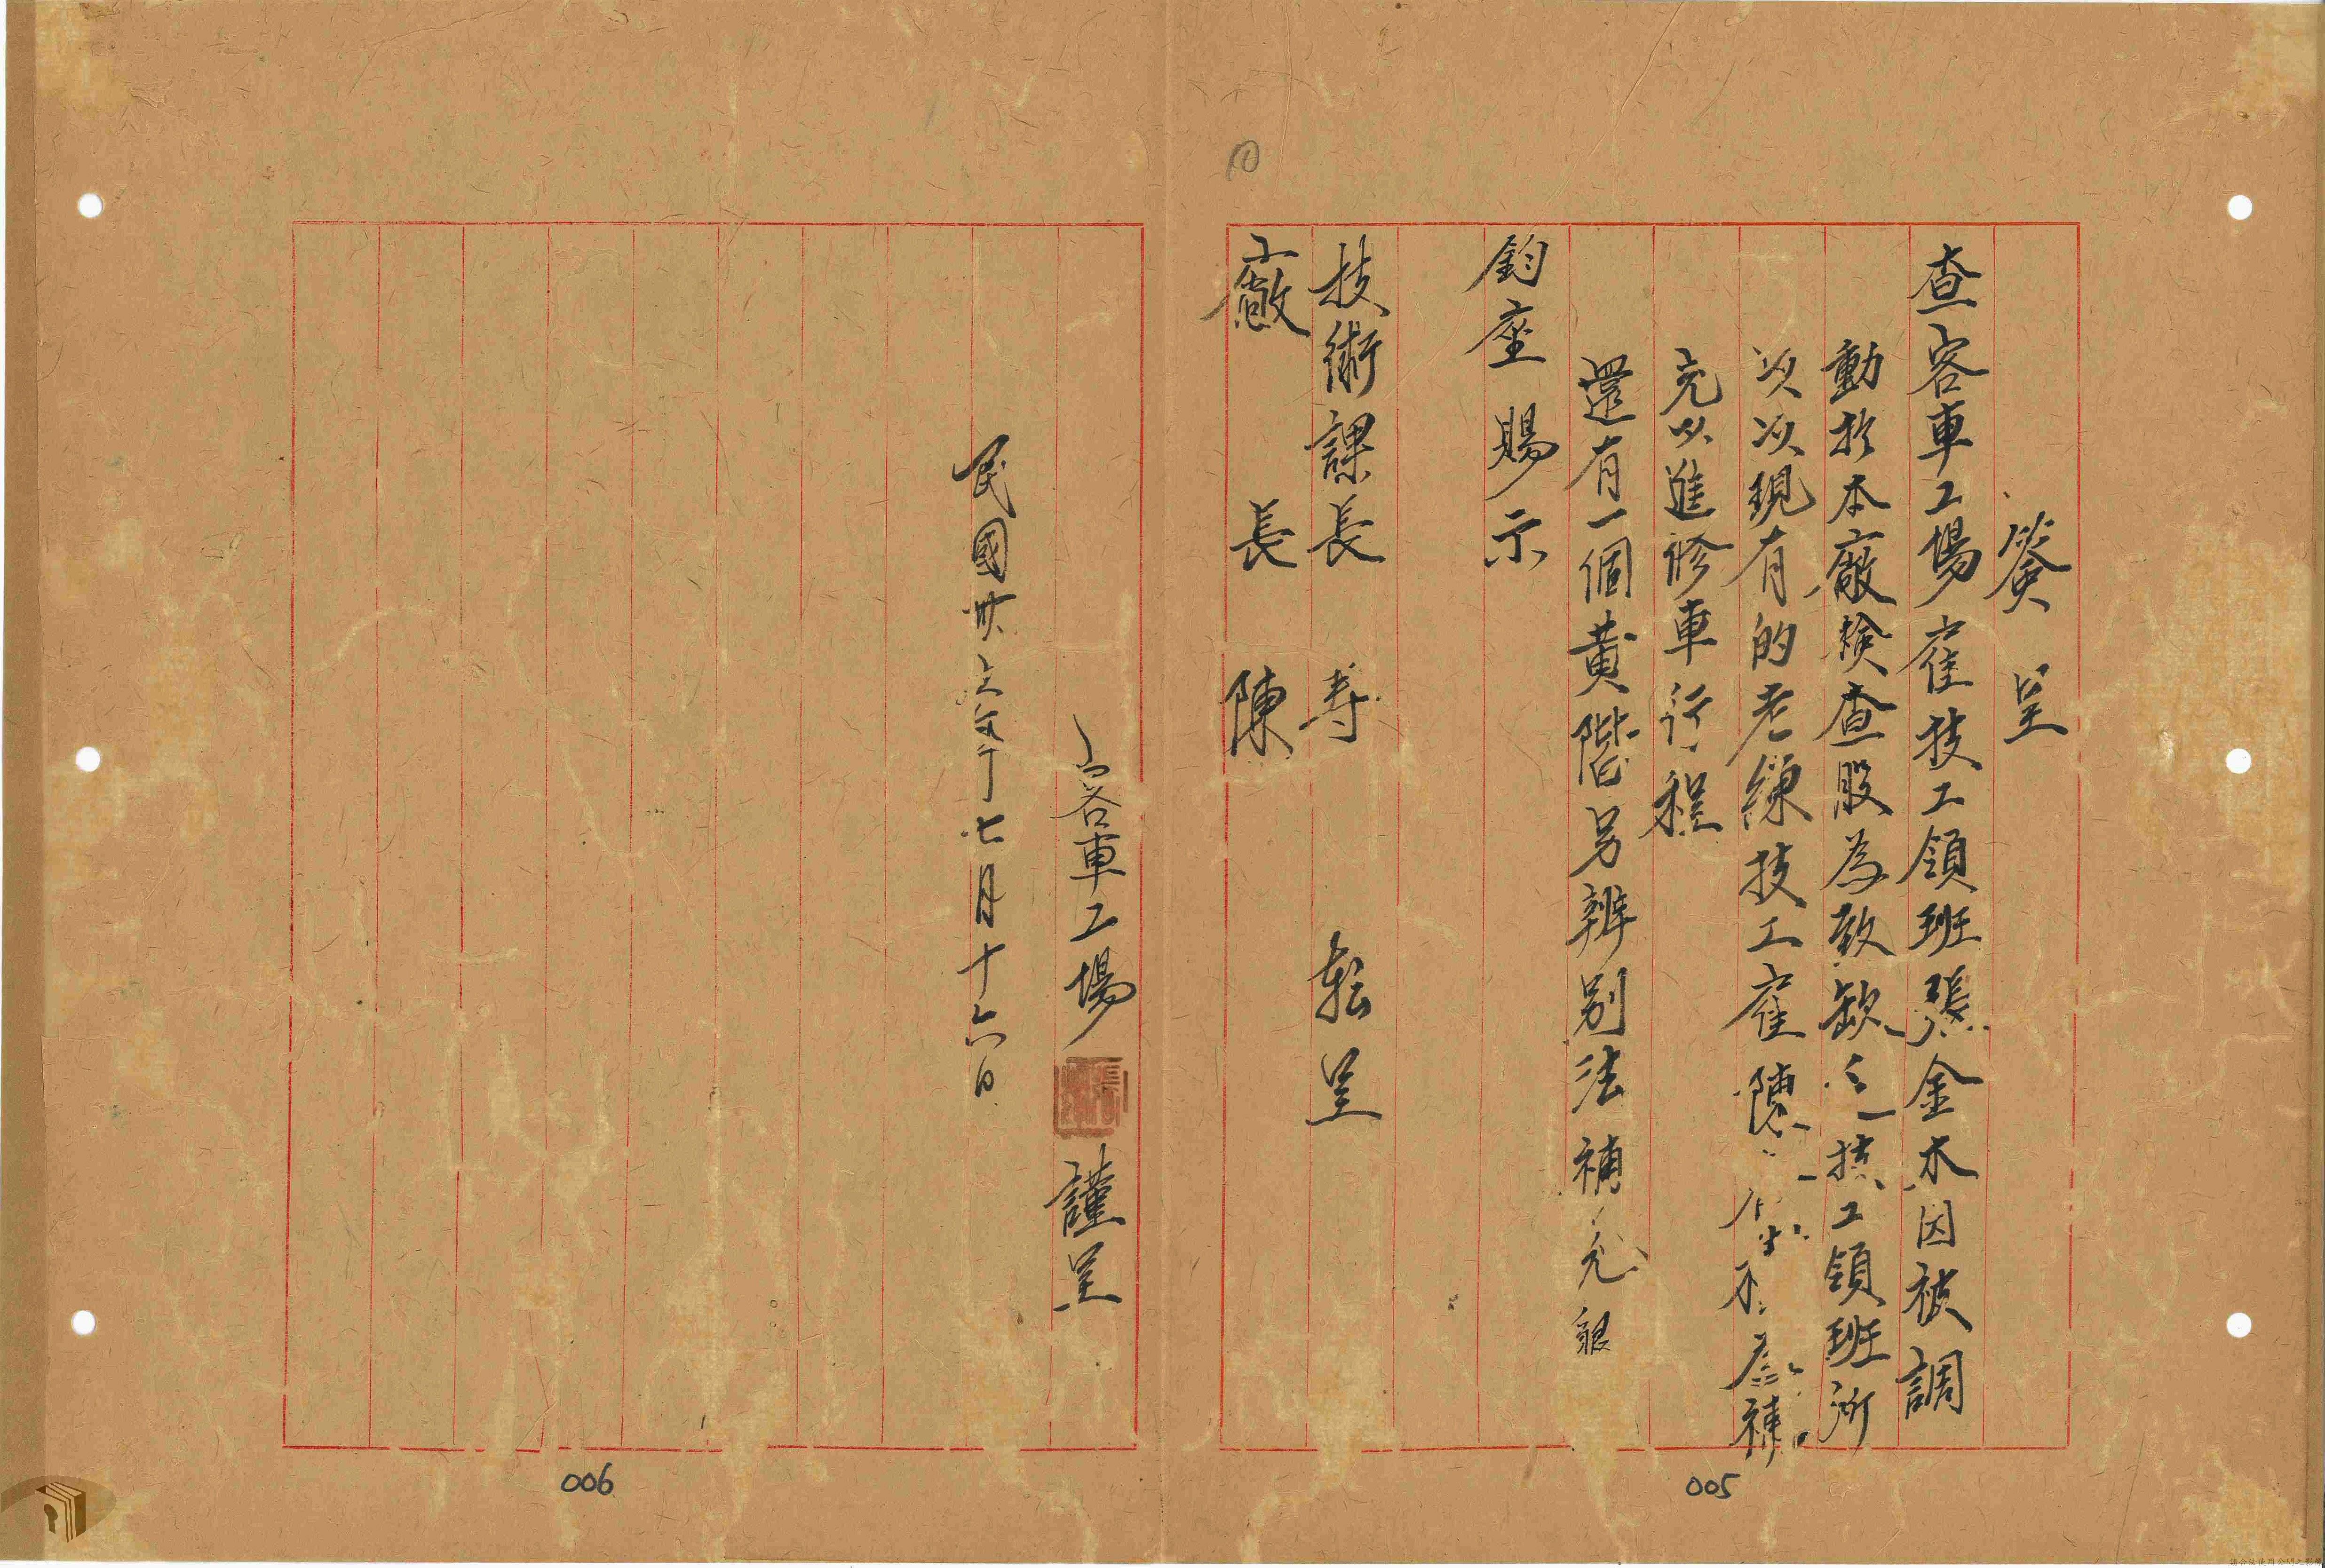 簽呈
查客車工場雇技工領班張金木因被調
動於本廠檢查股為致缺之一技工領班所
以以現有的老練技工雇陳
充以進修車行程
還有一個黃階另辦別法補充
鈞座賜示
技術課長 寺 転呈
廠長 陳
客車工場 謹呈
民國卅 年七月十六日
005
006